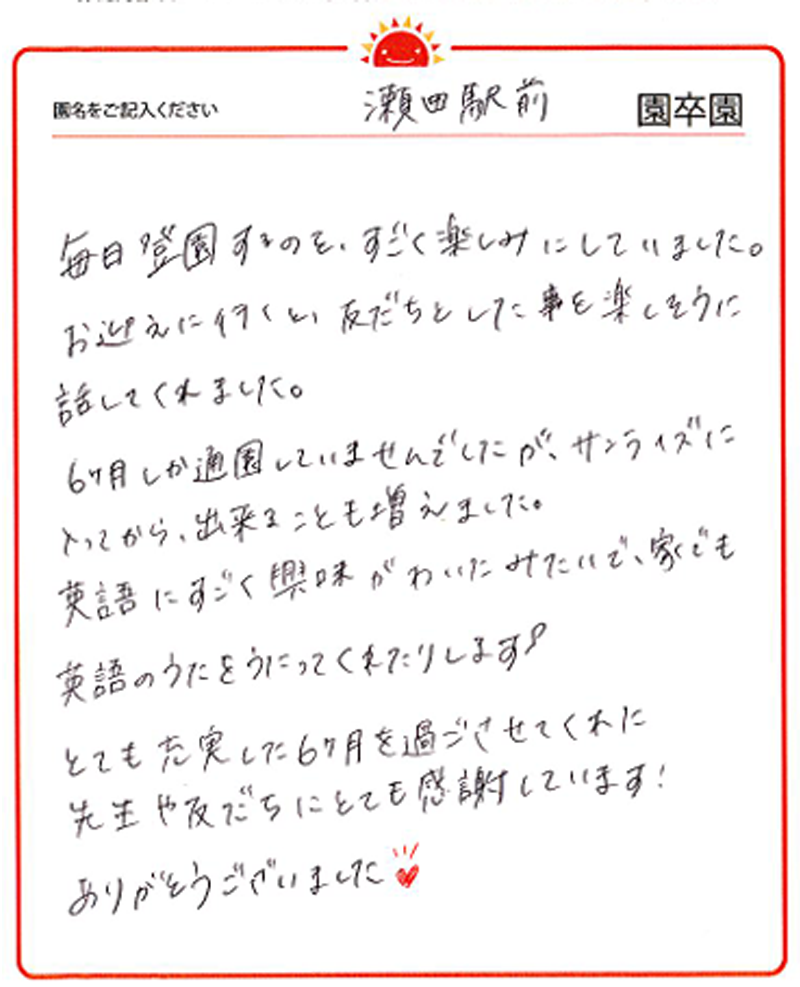 園名をご記入ください 瀬田駅前 園卒園
毎日登園するのを、すごく楽しみにしていました。
お迎えに行くと、友だちとした事を楽しそうに
話してくれました。
6ヶ月しか通園していませんでしたが、サンライズに
入ってから、出来ることも増えました。
英語にすごく興味がわいたみたいで、家でも
英語のうたをうたってくれたりします♪
とても充実した6ヶ月を過ごさせてくれた
先生や友だちにとても感謝しています!
ありがとうございました